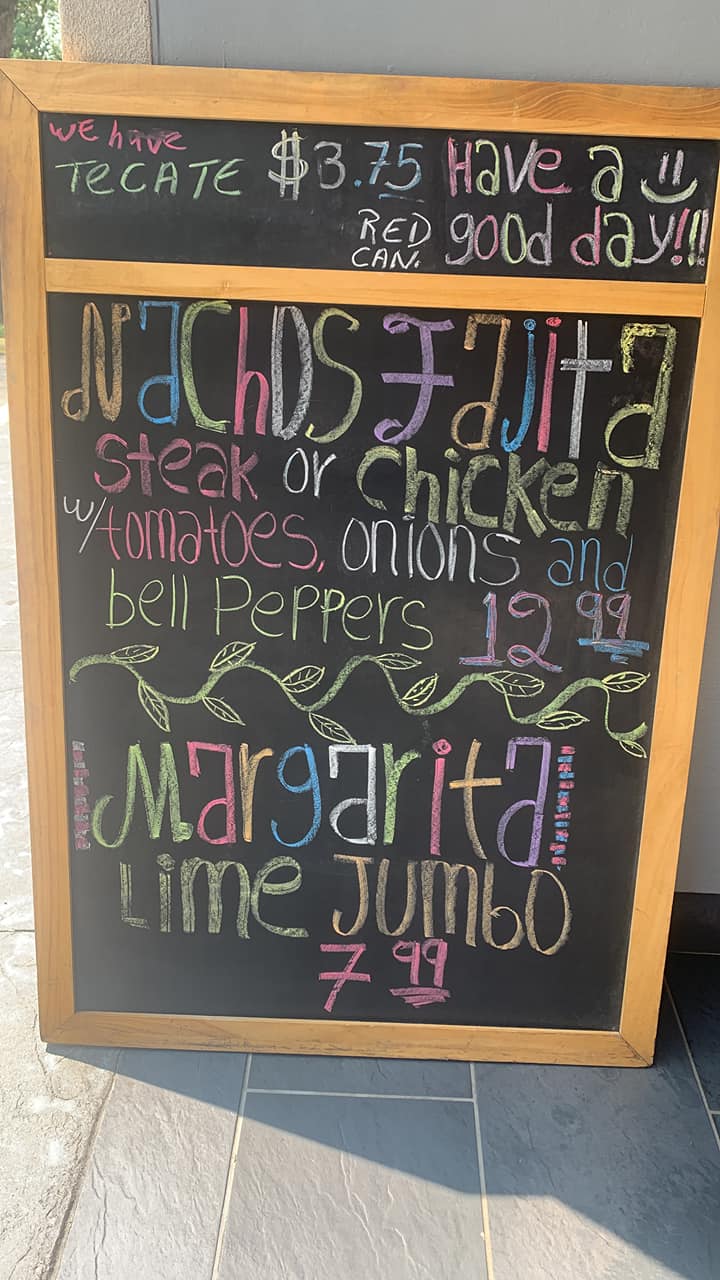 We have
TECATE $3.75 Have a
RED good day!!!
CAN.
NachOS Fajita
steak or chicken
w/tomatoes, onions and
bell Peppers 12 99
Margarita
Lime Jumbo
7 99